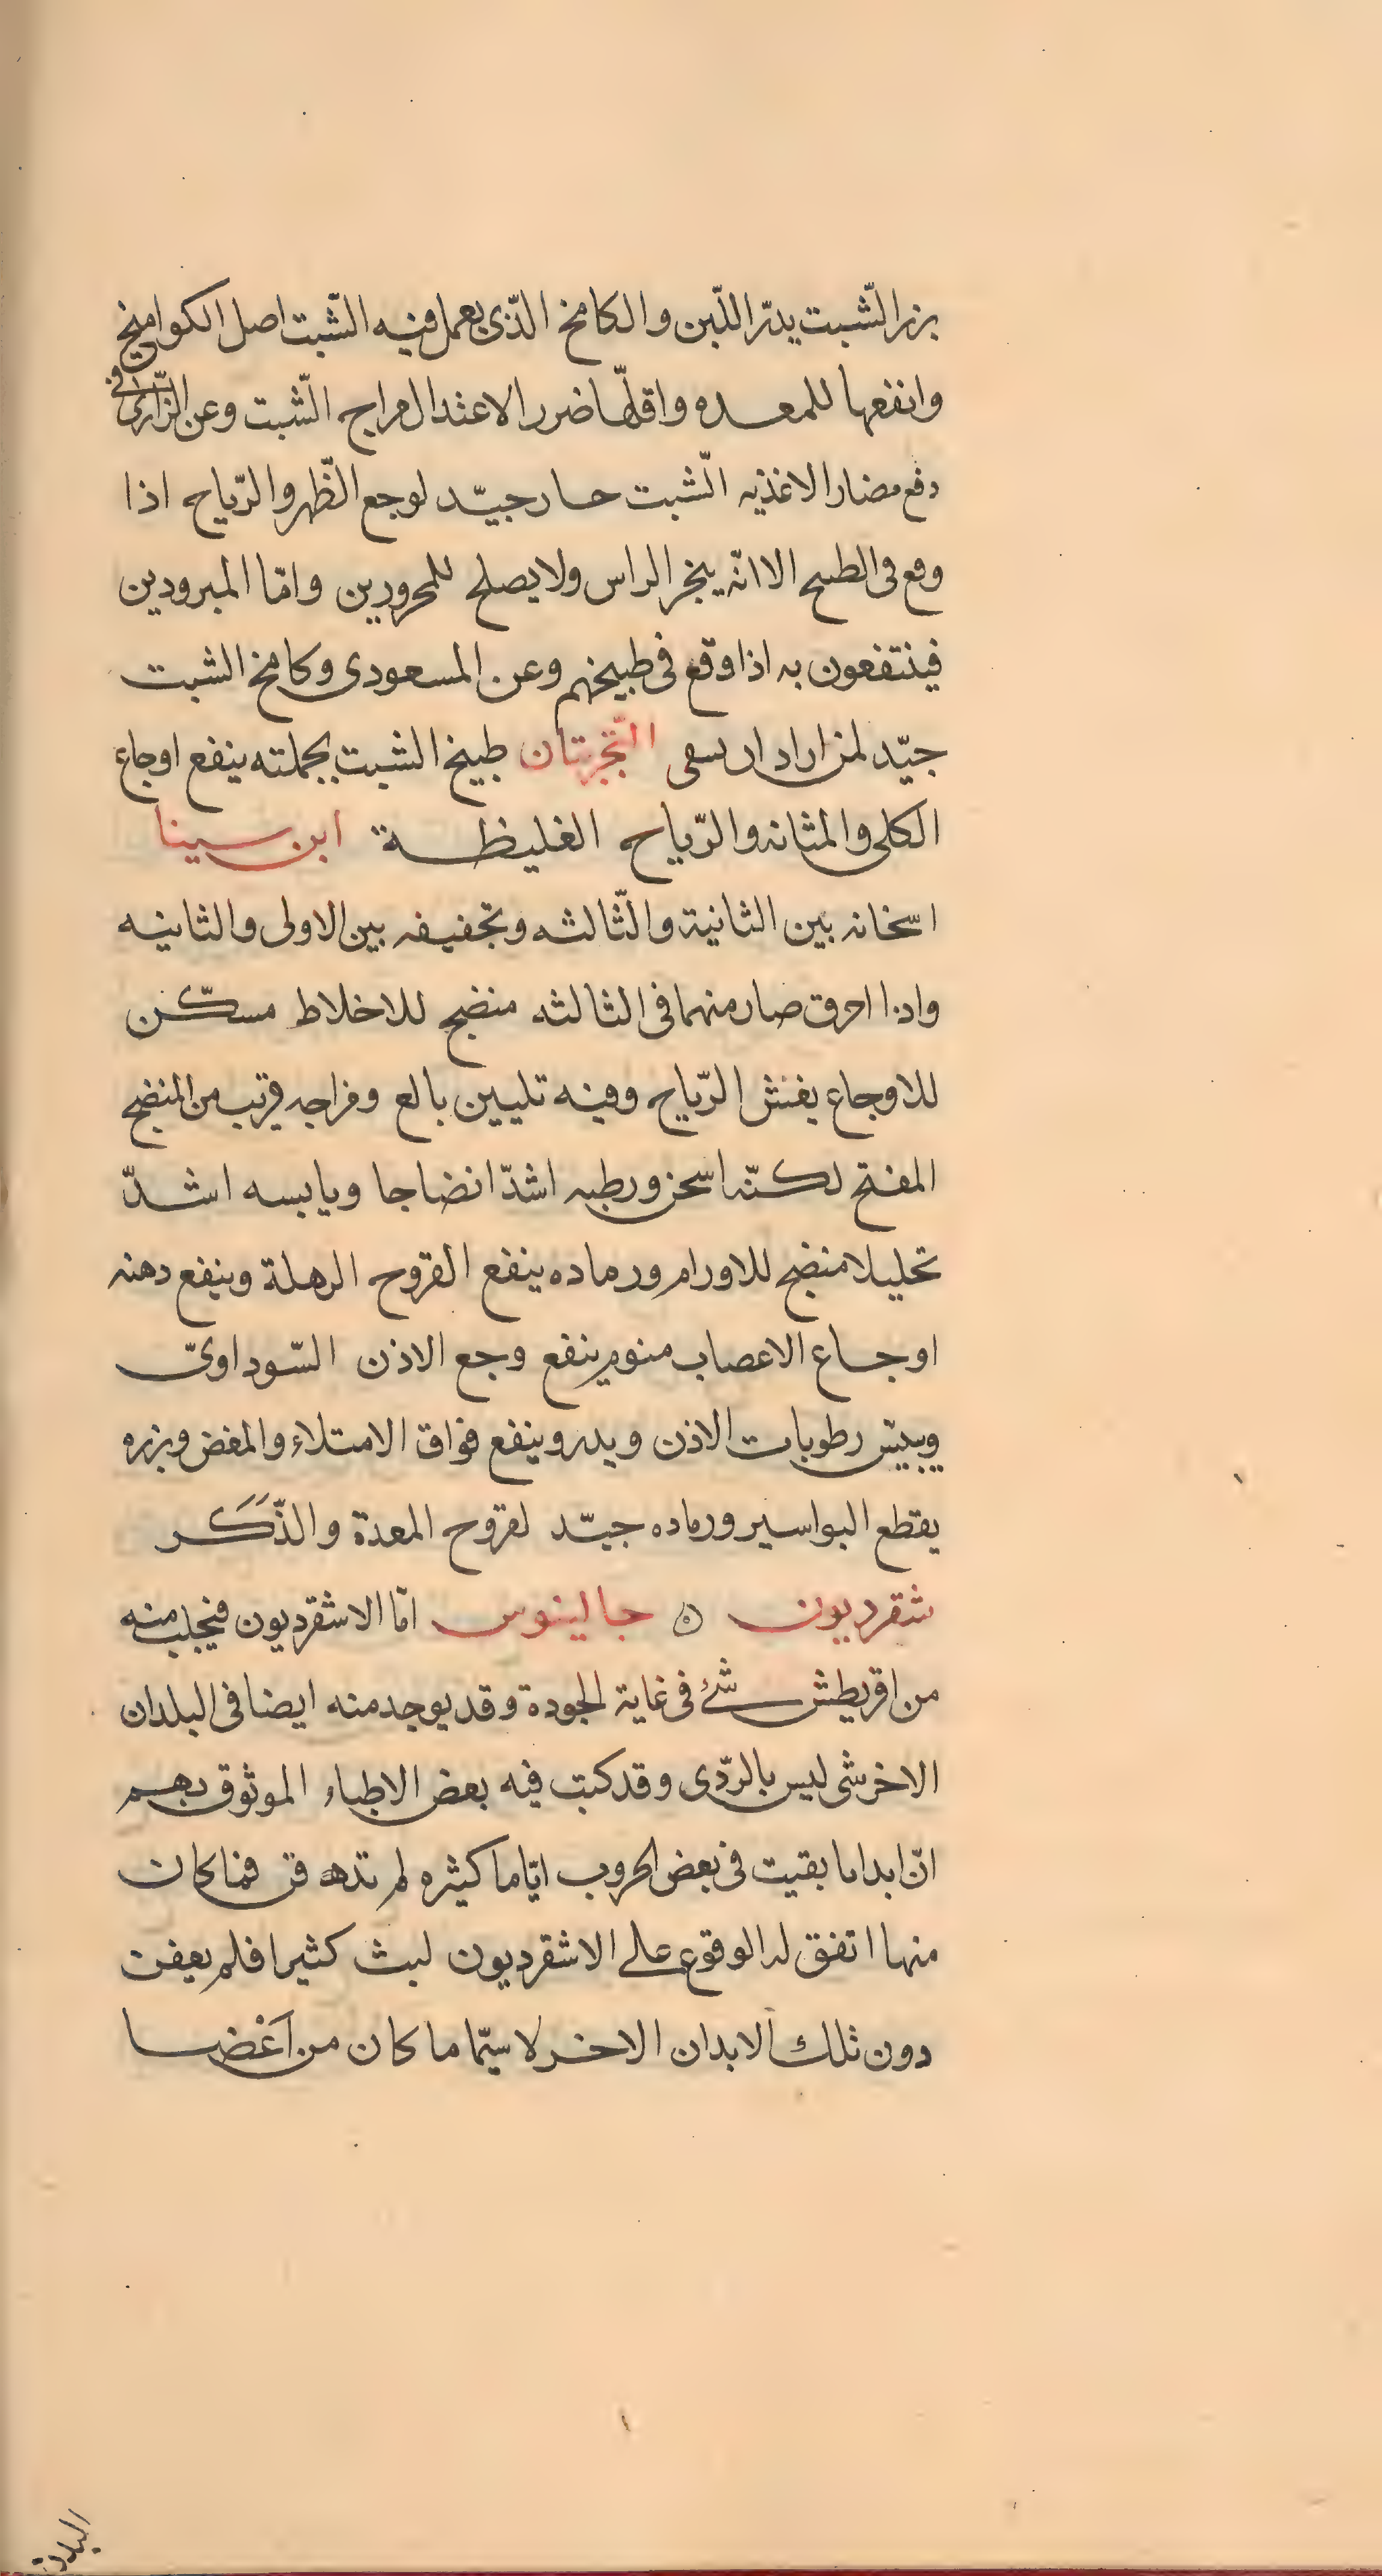 بزر الشّبت يدرّ اللّبن والكامخ الذّى يعمل فيه الشّبت اصل الكواميخ
وانفعها للمعده واقلّها ضررا لاعتدال مزاج الشّبت وعن الرّازى فى
دفع مضار الاغذيه الشّبت حار جيّد لوجع الظّهر والرّياح اذا
وقع فى الطبيخ الا انّه يبخر الراس ولا يصلح للمحرورين وامّا المبرودين
فينتفعون به اذا وقع فى طبيخهم وعن المسعودى وكامخ الشبت
جيّد لمن اراد ان يتقى التّجربتان طبيخ الشبت بجملته ينفع اوجاع
الكلى والمثانه والرّياح الغليظة ابن سينا
اسخانه بين الثانية والثّالثه وتجفيفه بين الاولى والثانيه
واذا احرق صار منهما فى الثالثه منضج للاخلاط مسكّن
للاوجاع يفش الرّياح وفيه تليين بالغ ومزاجه قريب من المنضج
المفتح لكنّه اسخن ورطبه اشدّ انضاجا ويابسه اشدّ
تحليلا منضج للاورام ورماده ينفع القروح الرهلة وينفع دهنه
اوجاع الاعصاب منوم ينفع وجع الاذن السّوداوىّ
وييبّس رطوبات الاذن ويدر وينفع فواق الامتلاء والمغض وبزره
يقطع البواسير ورماده جيّد لقروح المعدة والذّكَر
شقرديون ۞ جالينوس امّا الاشقرديون فيجلب منه
من اقريطش شئ فى غاية الجودة وقد يوجد منه ايضا فى البلدان
الاخر شى ليس بالرّدى وقد كتب فيه بعض الاطباء الموثوق بهم
انّ ابدانا بقيت فى بعض الحروب ايّاما كثيره لم تدفن فما كان
منها اتفق له الوقوع على الاشقرديون لبث كثيرا فلم يعفن
دون تلك الابدان الاخر لا سيّما ما كان من اغضا